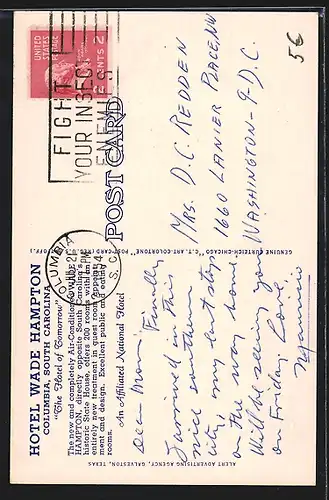 HOTEL WADE HAMPTON
COLUMBIA, SOUTH CAROLINA
"The Hotel of Tomorrow"
The new and completely Air-Conditioned WADE
HAMPTON, directly opposite South Carolina's
historic State House, offers 200 rooms with an
entirely new treatment in guest room appoint-
ment and design. Excellent public and eating
rooms.
An Affiliated National Hotel
Dear Mom & Family,
Jammed in this
nice southern
city, my last stop
on the way home.
Will be seeing you
on Friday
Love,
POST CARD
GENUINE CURTEICH-CHICAGO "C.T. ART-COLORTONE" POST CARD (REG. U.S. PAT. OFF.)
ALERT ADVERTISING AGENCY, GALVESTON, TEXAS
UNITED STATES
POSTAGE
2 CENTS 2
FIGHT
YOUR INSECT
ENEMIES
COLUMBIA
PM
1954
S. C.
5¢
MRS. D.C. REDDEN
1660 LANIER PLACE, NW
WASHINGTON-9-D.C.